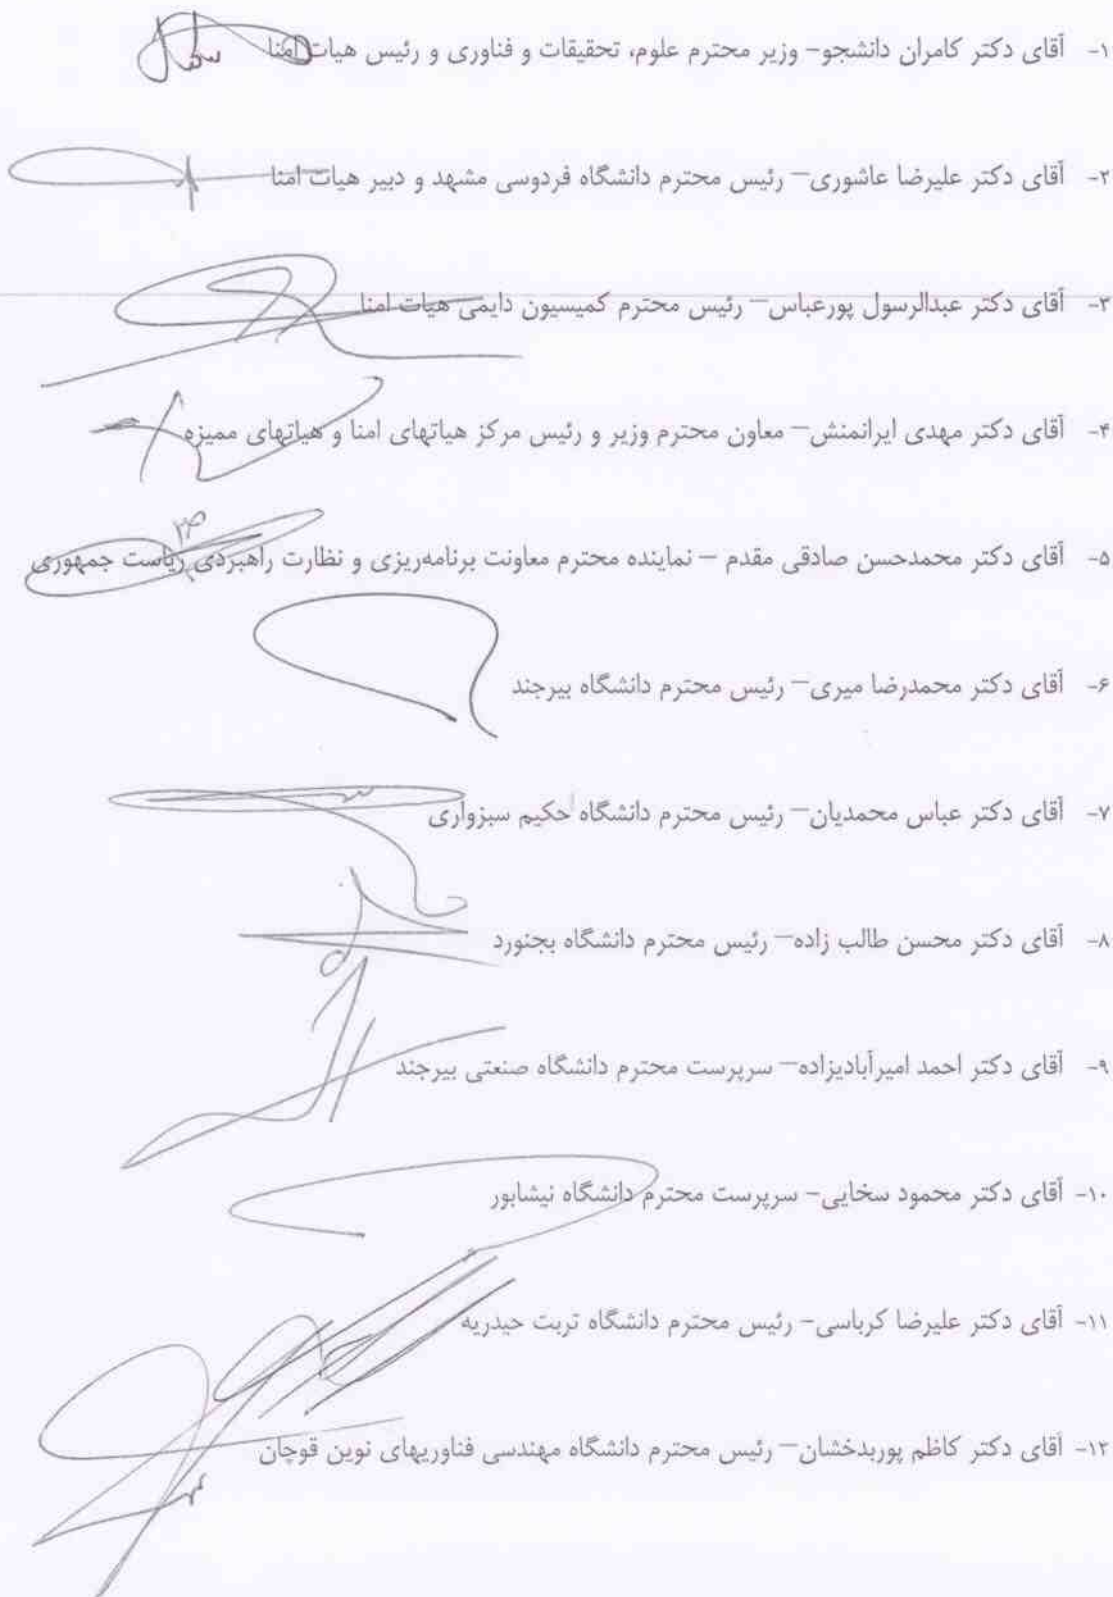 ۱- آقای دکتر کامران دانشجو- وزیر محترم علوم، تحقیقات و فناوری و رئیس هیات امنا
۲- آقای دکتر علیرضا عاشوری– رئیس محترم دانشگاه فردوسی مشهد و دبیر هیات امنا
۳- آقای دکتر عبدالرسول پورعباس– رئیس محترم کمیسیون دایمی هیات امنا
۴- آقای دکتر مهدی ایرانمنش– معاون محترم وزیر و رئیس مرکز هیاتهای امنا و هیاتهای ممیزه
۵- آقای دکتر محمدحسن صادقی مقدم – نماینده محترم معاونت برنامه‌ریزی و نظارت راهبردی ریاست جمهوری
۶- آقای دکتر محمدرضا میری– رئیس محترم دانشگاه بیرجند
۷- آقای دکتر عباس محمدیان– رئیس محترم دانشگاه حکیم سبزواری
۸- آقای دکتر محسن طالب زاده– رئیس محترم دانشگاه بجنورد
۹- آقای دکتر احمد امیرآبادیزاده– سرپرست محترم دانشگاه صنعتی بیرجند
۱۰- آقای دکتر محمود سخایی- سرپرست محترم دانشگاه نیشابور
۱۱- آقای دکتر علیرضا کرباسی- رئیس محترم دانشگاه تربت حیدریه
۱۲- آقای دکتر کاظم پوربدخشان– رئیس محترم دانشگاه مهندسی فناوریهای نوین قوچان